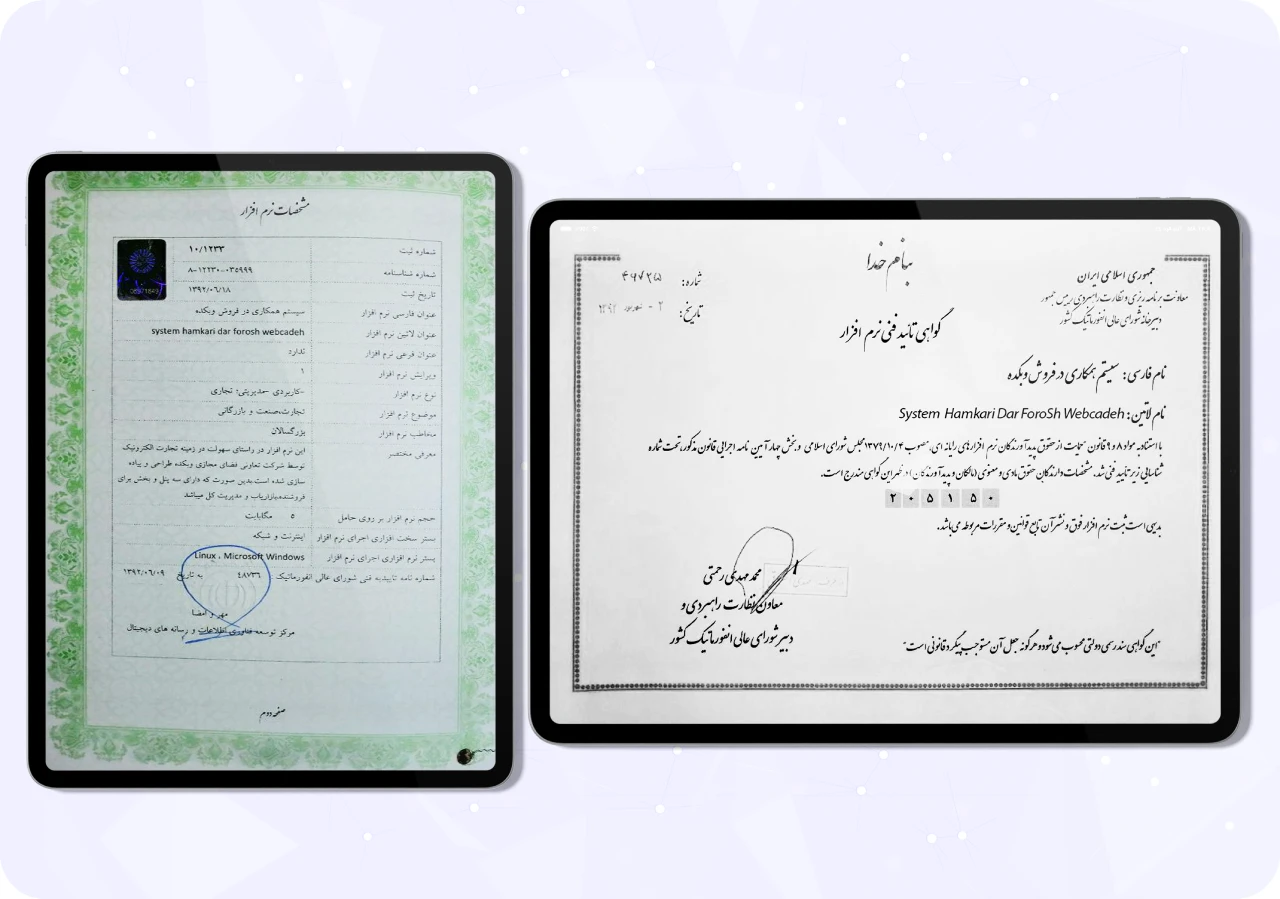 مشخصات نرم افزار
شماره ثبت ۱۰/۱۲۳۳
شماره شناسنامه ۸-۱۲۲۳۰-۰۳۵۹۹۹
تاریخ ثبت ۱۳۹۲/۰۶/۱۸
عنوان فارسی نرم افزار سیستم همکاری در فروش وبکده
عنوان لاتین نرم افزار system hamkari dar forosh webcadeh
عنوان فرعی نرم افزار ندارد
ویرایش نرم افزار ۱
نوع نرم افزار -کاربردی -مدیریتی؛ تجاری
موضوع نرم افزار تجارت،صنعت و بازرگانی
مخاطب نرم افزار بزرگسالان
معرفی مختصر این نرم افزار در راستای سهولت در زمینه تجارت الکترونیک
توسط شرکت تعاونی فضای مجازی وبکده طراحی و پیاده
سازی شده است.بدین صورت که دارای سه پنل و بخش برای
فروشنده،بازاریاب و مدیریت کل میباشد
حجم نرم افزار بر روی حامل ۵ مگابایت
بستر سخت افزاری اجرای نرم افزار اینترنت و شبکه
بستر نرم افزاری اجرای نرم افزار Linux ، Microsoft Windows
شماره نامه تاییدیه فنی شورای عالی انفورماتیک : ٤٨٧٣٦ به تاریخ ۱۳۹۲/۰۶/۰۹
مهر و امضا
مرکز توسعه فناوری اطلاعات و رسانه های دیجیتال
صفحه دوم
بنام خدا
جمهوری اسلامی ایران
معاونت برنامه ریزی و نظارت راهبردی رییس جمهور
دبیرخانه شورای عالی انفورماتیک کشور
شماره:
تاریخ:
گواهی تائید فنی نرم افزار
نام فارسی: سیستم همکاری در فروش وبکده
نام لاتین: System Hamkari Dar ForoSh Webcadeh
با استناد به مواد ۸ و ۹ قانون حمایت از حقوق پدیدآورندگان نرم افزارهای رایانه ای، مصوب ۱۳۷۹/۱۰/۴ مجلس شورای اسلامی و بخش چهار آیین نامه اجرایی قانون مذکور، تحت شماره
شناسایی زیر تایید فنی شد. مشخصات دارندگان حقوق مادی و معنوی (مالکان و پدیدآورندگان) در ظهر این گواهی مندرج است.
۲۰۵۱۵۰
بدیهی است ثبت نرم افزار فوق و نشر آن تابع قوانین و مقررات مربوطه می باشد.
محمد مهدی رحمتی
معاون نظارت راهبردی و
دبیر شورای عالی انفورماتیک کشور
"این گواهی سند رسمی دولتی محسوب می شود و هرگونه جعل آن مستوجب پیگرد قانونی است"